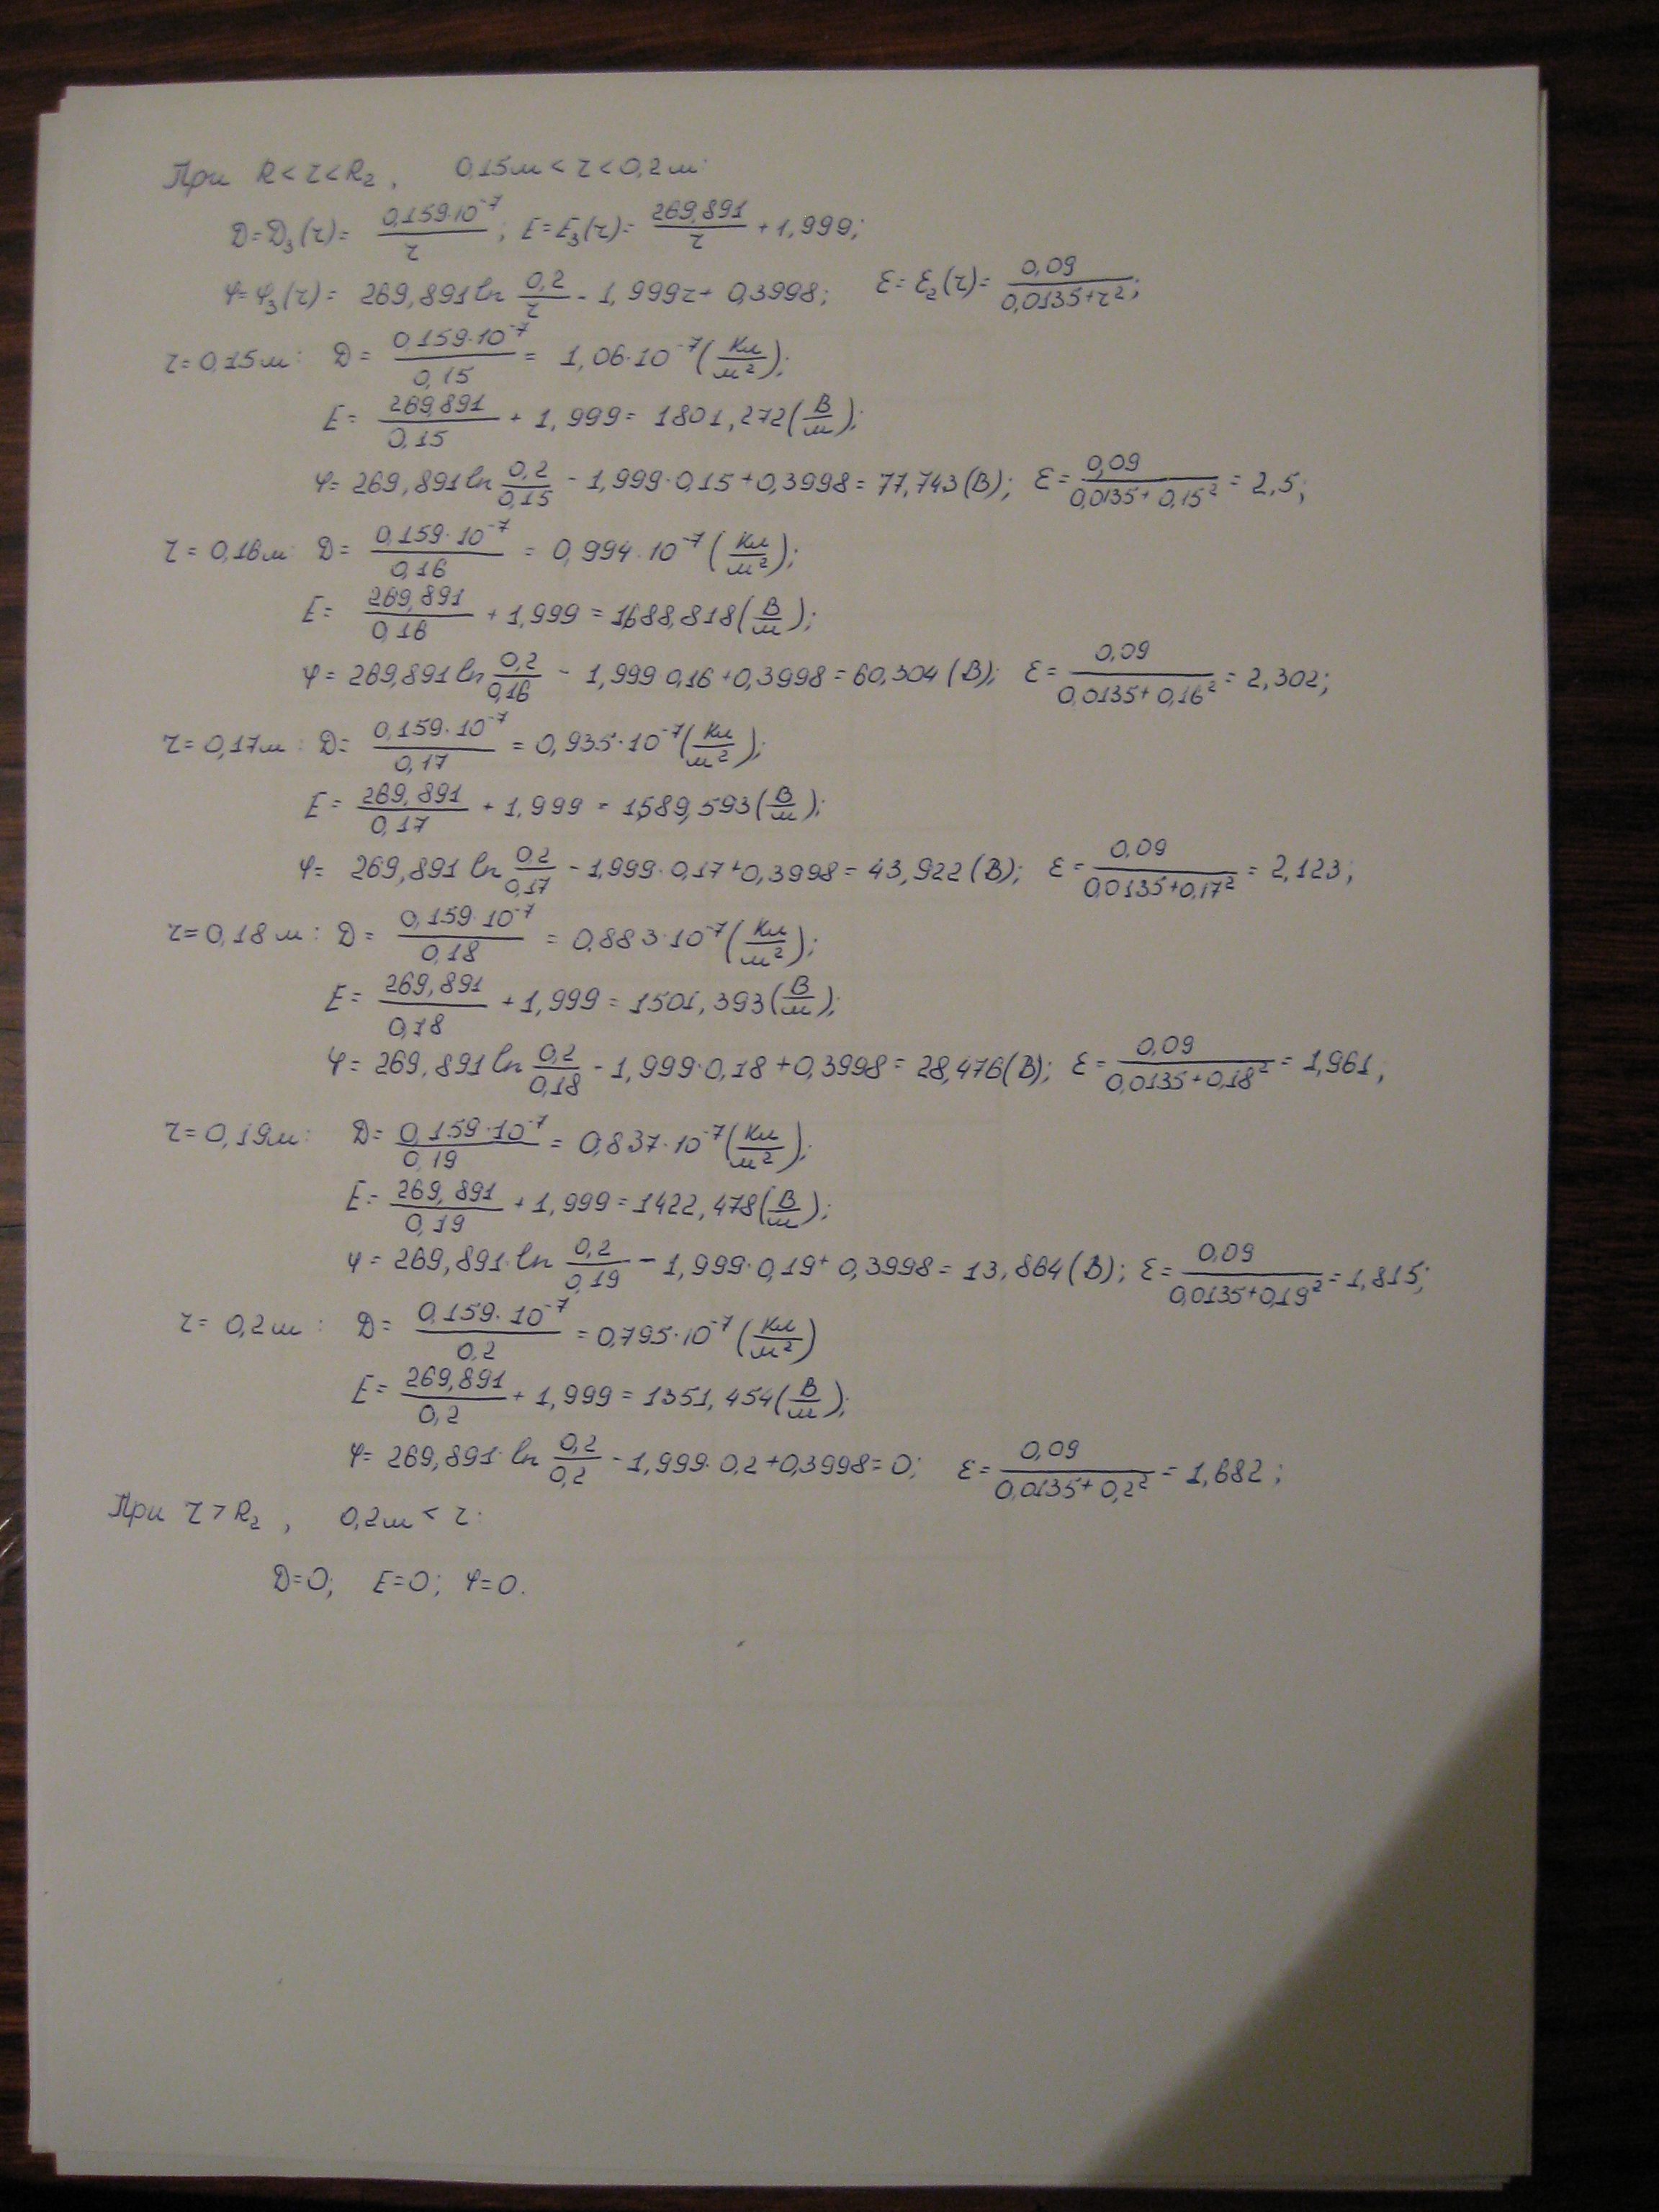 При R < r < R₂, 0,15м < r < 0,2м:
D = D₃(r) = 0,159·10⁻⁷/r; E = E₃(r) = 269,891/r + 1,999;
φ = φ₃(r) = 269,891 ln 0,2/r - 1,999r + 0,3998; ε = ε₂(r) = 0,09/(0,0135+r²);
r = 0,15м: D = 0,159·10⁻⁷/0,15 = 1,06·10⁻⁷ (Кл/м²);
E = 269,891/0,15 + 1,999 = 1801,272 (В/м);
φ = 269,891 ln 0,2/0,15 - 1,999·0,15 + 0,3998 = 77,743 (В); ε = 0,09/(0,0135+0,15²) = 2,5;
r = 0,16м: D = 0,159·10⁻⁷/0,16 = 0,994·10⁻⁷ (Кл/м²);
E = 269,891/0,16 + 1,999 = 1688,818 (В/м);
φ = 269,891 ln 0,2/0,16 - 1,999·0,16 + 0,3998 = 60,304 (В); ε = 0,09/(0,0135+0,16²) = 2,302;
r = 0,17м: D = 0,159·10⁻⁷/0,17 = 0,935·10⁻⁷ (Кл/м²);
E = 269,891/0,17 + 1,999 = 1589,593 (В/м);
φ = 269,891 ln 0,2/0,17 - 1,999·0,17 + 0,3998 = 43,922 (В); ε = 0,09/(0,0135+0,17²) = 2,123;
r = 0,18м: D = 0,159·10⁻⁷/0,18 = 0,883·10⁻⁷ (Кл/м²);
E = 269,891/0,18 + 1,999 = 1501,393 (В/м);
φ = 269,891 ln 0,2/0,18 - 1,999·0,18 + 0,3998 = 28,476 (В); ε = 0,09/(0,0135+0,18²) = 1,961;
r = 0,19м: D = 0,159·10⁻⁷/0,19 = 0,837·10⁻⁷ (Кл/м²);
E = 269,891/0,19 + 1,999 = 1422,478 (В/м);
φ = 269,891·ln 0,2/0,19 - 1,999·0,19 + 0,3998 = 13,864 (В); ε = 0,09/(0,0135+0,19²) = 1,815;
r = 0,2м: D = 0,159·10⁻⁷/0,2 = 0,795·10⁻⁷ (Кл/м²)
E = 269,891/0,2 + 1,999 = 1351,454 (В/м);
φ = 269,891·ln 0,2/0,2 - 1,999·0,2 + 0,3998 = 0; ε = 0,09/(0,0135+0,2²) = 1,682;
При r > R₂, 0,2м < r:
D=0; E=0; φ=0.